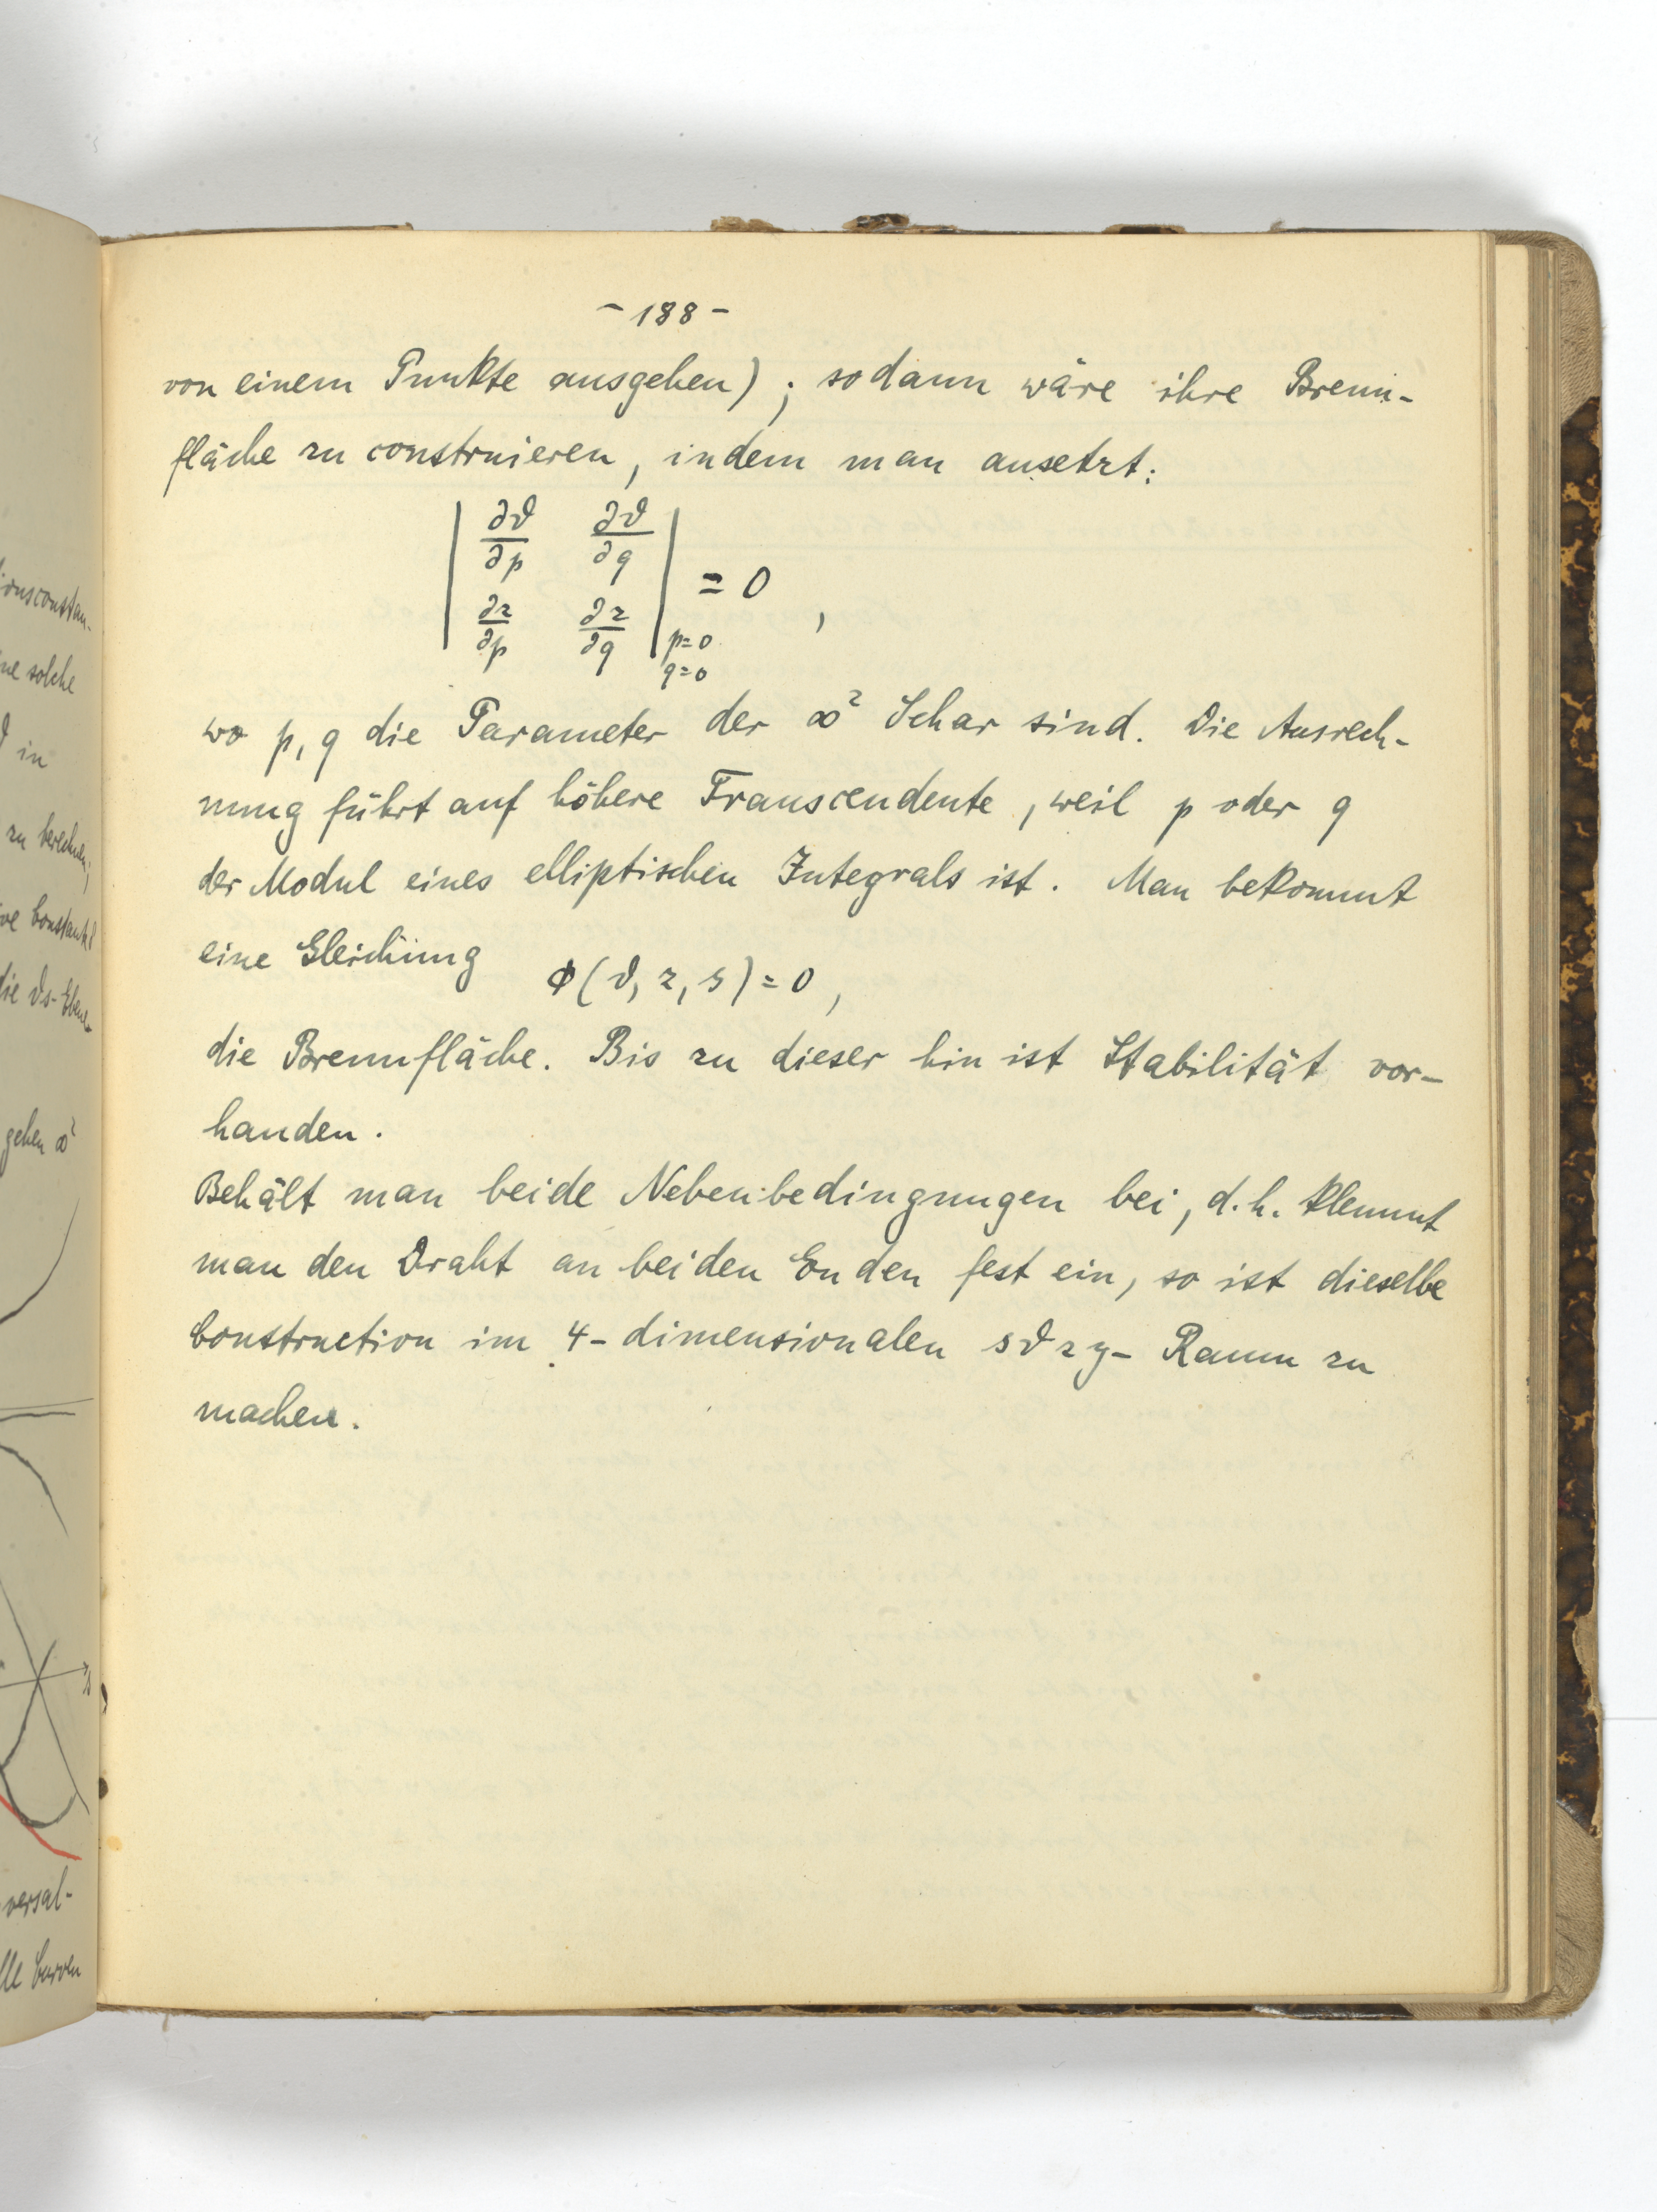 - 188 -
von einem Punkte ausgehen); sodann wäre ihre Brenn-
fläche zu construieren, indem man ansetzt:
| ∂ϑ/∂p ∂ϑ/∂q |
| ∂z/∂p ∂z/∂q | p=0 q=0 = 0 ,
wo p, q die Parameter der ∞² Schar sind. Die Ausrech-
nung führt auf höhere Transcendente, weil p oder q
der Modul eines elliptischen Integrals ist. Man bekommt
eine Gleichung Φ(ϑ, z, s) = 0,
die Brennfläche. Bis zu dieser hin ist Stabilität vor-
handen.
Behält man beide Nebenbedingungen bei, d.h. klemmt
man den Draht an beiden Enden fest ein, so ist dieselbe
Construction im 4-dimensionalen sϑzy- Raum zu
machen.
ne solche
ϑ in
zu berechnen;
die ϑs-Ebene
gehen ∞²
versal-
Curven